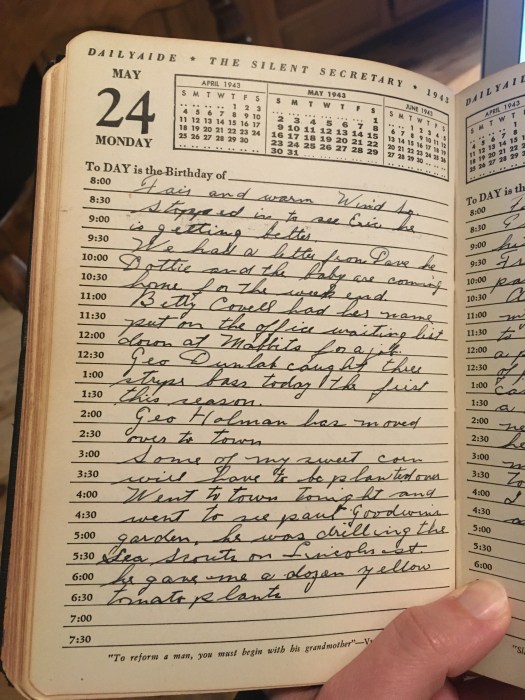 DAILYAIDE * THE SILENT SECRETARY * 1943
MAY
24
MONDAY
APRIL 1943
S M T W T F S
1 2 3
4 5 6 7 8 9 10
11 12 13 14 15 16 17
18 19 20 21 22 23 24
25 26 27 28 29 30
MAY 1943
S M T W T F S
1
2 3 4 5 6 7 8
9 10 11 12 13 14 15
16 17 18 19 20 21 22
23 24 25 26 27 28 29
30 31
JUNE 1943
S M T W T F S
1 2 3 4 5
6 7 8 9 10 11 12
13 14 15 16 17 18 19
20 21 22 23 24 25 26
27 28 29 30
To DAY is the Birthday of
8:00 Fair and warm Wind So
8:30 Stopped in to see Eric he
9:00 is getting better
9:30 We had a letter from Dave he
10:00 Dottie and the baby are coming
10:30 home for the week end
11:00 Betty Covell had her name
11:30 put on the office waiting list
12:00 down at for a job.
12:30 Geo Dunlap caught three
1:00 strips bass today the first
1:30 this season.
2:00 Geo Holman has moved
2:30 over to town
3:00 Some of my sweet corn
3:30 will have to be planted over
4:00 Went to town tonight and
4:30 went to see paul Goodwins
5:00 garden, he was drilling the
5:30 Sea Scouts on Lincoln st
6:00 he gave me a dozen yellow
6:30 tomato plants
7:00
7:30
"To reform a man, you must begin with his grandmother"
DAILYAID
APRIL 1943
To DAY is th
8:00
8:30
9:00
9:30
10:00
10:30
11:00
11:30
12:00
12:30
1:00
1:30
2:00
2:30
3:00
3:30
4:00
4:30
5:00
5:30
6:00